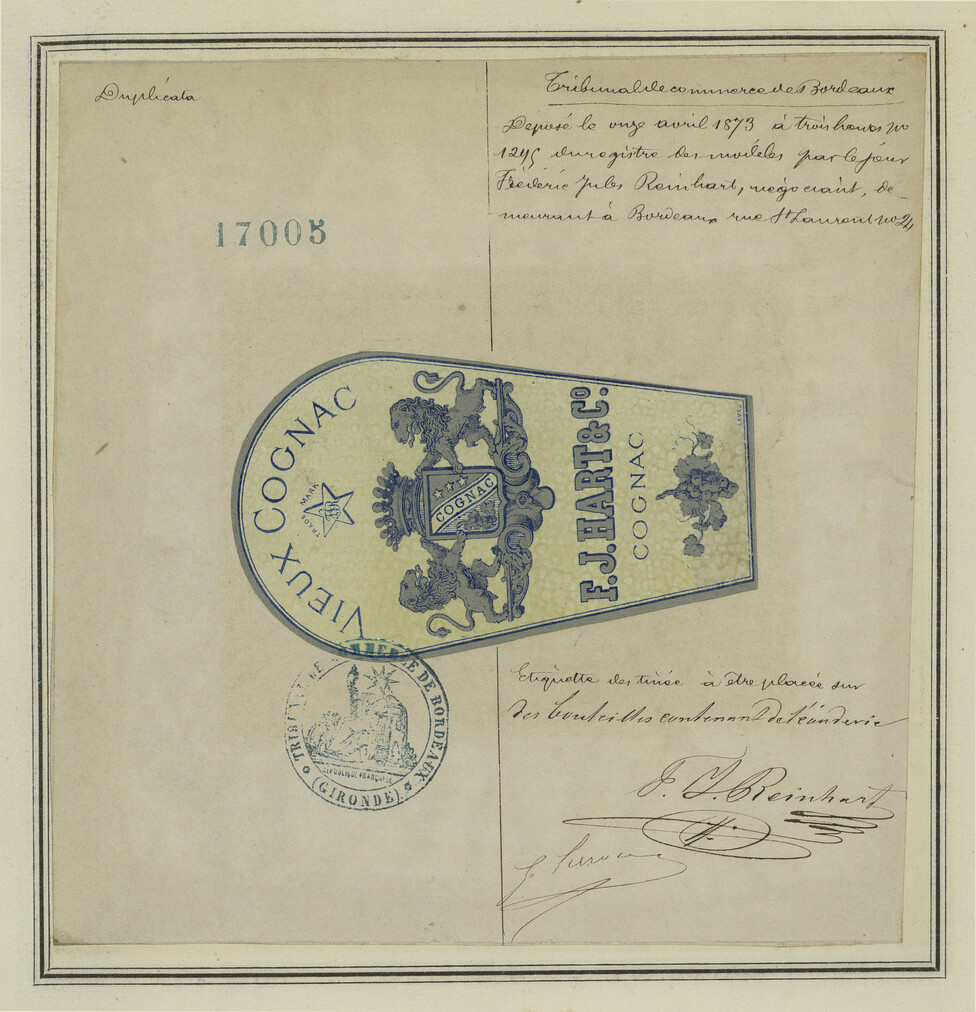 Duplicata
Tribunal de commerce de Bordeaux
Déposé le onze avril 1873 à trois heures no
1295 du registre des modèles par le sieur
Fréderic Jules Reinhart, négociant, de-
meurant à Bordeaux rue St Laurent no 24
17005
VIEUX COGNAC
TRADE MARK
COGNAC
F.J. HART & Co.
COGNAC
TRIBUNAL DE COMMERCE DE BORDEAUX
RÉPUBLIQUE FRANÇAISE
(GIRONDE)
Etiquette destinée à être placée sur
des bouteilles contenant de l'eau de vie
F. J. Reinhart